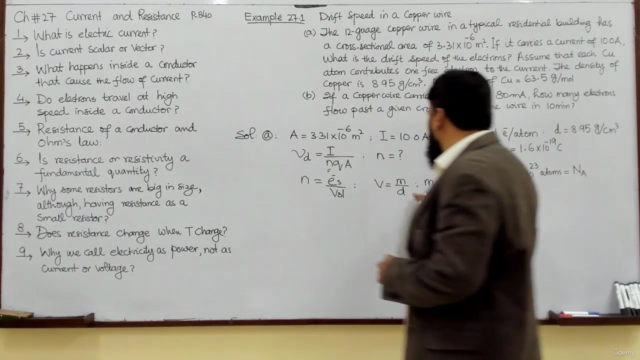 Ch # 27 Current and Resistance P.840
1, What is electric current?
2, Is current Scalar or Vector?
3, What happens inside a Conductor
that cause the flow of current?
4, Do elctrons travel at high
Speed inside a Conductor?
5, Resistance of a conductor and
Ohm's law.
6, Is resistance or resistivity a
fundamental quantity?
7, Why some resistors are big in size,
although, having resistance as a
Small resistor?
8, Does resistance change when T Change?
9, Why we call electricity as power, not as
Current or voltage?
Example 27.1 Drift Speed in a Copper wire
(a) The 12-guage copper wire in a typical residential building has
a cross-sectional area of 3.31x10⁻⁶ m². If it carries a current of 10.0A,
What is the drift speed of the electrons? Assume that each Cu
atom contributes one free to the current. The density of
Copper is 8.95 g/cm³. of Cu = 63.5 g/mol
(b) If a Copper wire 80mA, How many electrons
flow past a given wire in 10min?
Sol. (a) A = 3.31x10⁻⁶ m² ; I = 10.0 A ē/atom ; d = 8.95 g/cm³
v_d = I / nqA ; n = ? = 1.6x10⁻¹⁹ C
23 atoms = N_A
n = ēs / Vol V = m / d ; m
Udemy